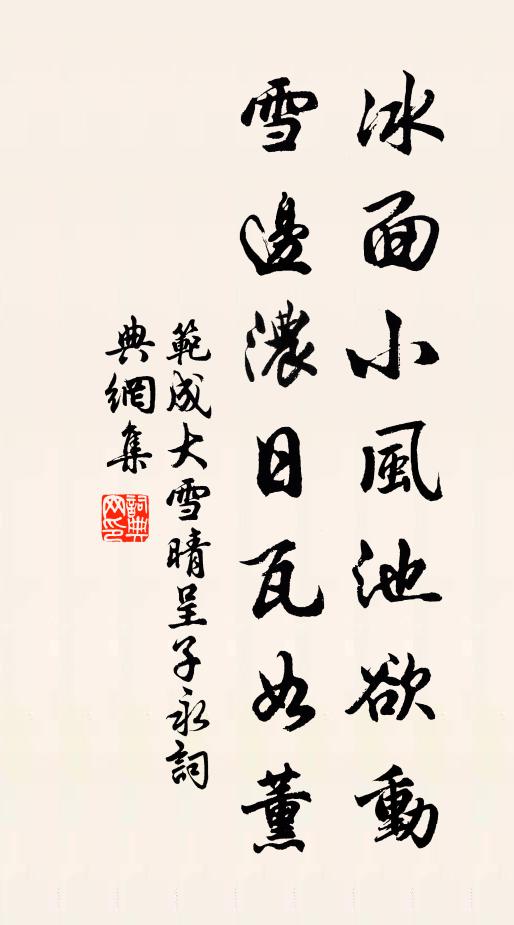 冰面小風池欲動
雪邊濃日瓦如薰
範成大雪晴呈子永詞
典網集
詞典网印